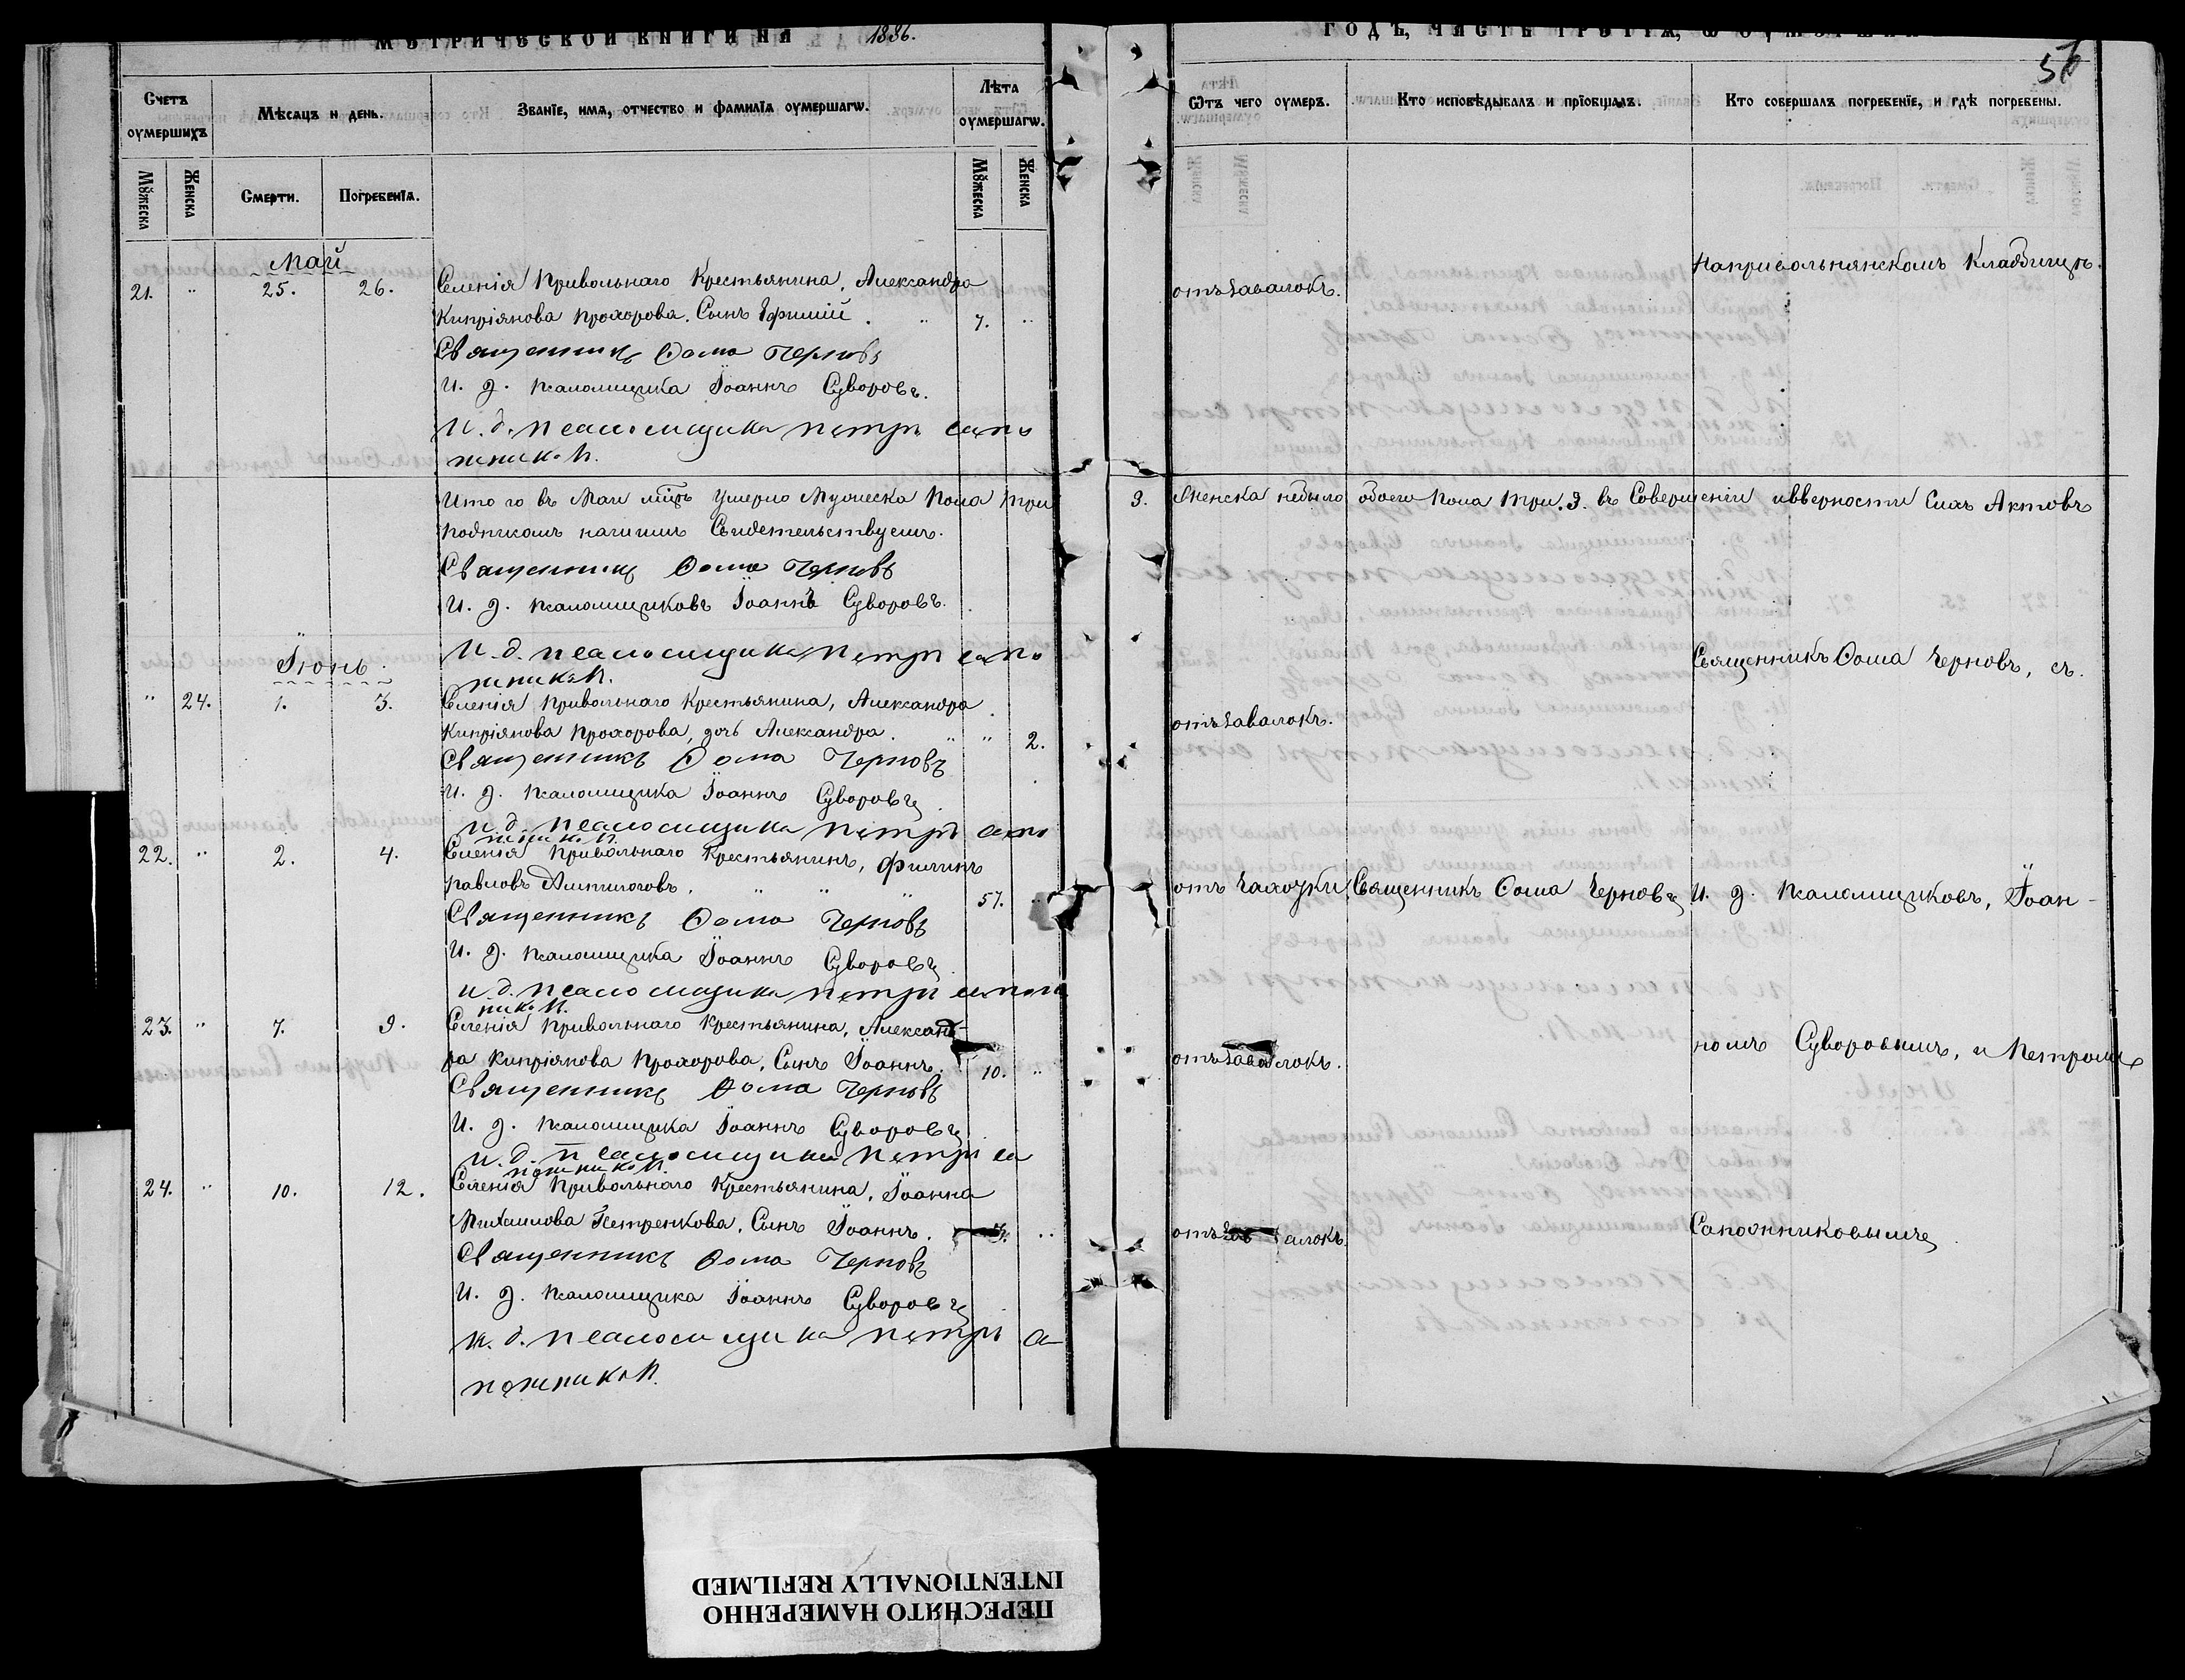 МЕТРИЧЕСКОЙ КНИГИ НА 1886.
ГОДЪ, ЧАСТЬ ТРЕТІЯ, Ѡ ОУМЕРШИХЪ
57
Счетъ оумершихъ
Мѣсяцъ и день.
Званіе, имя, отчество и фамилія оумершагѡ.
Лѣта оумершагѡ.
Ѿтъ чего оумеръ.
Кто исповѣдывалъ и пріобщалъ.
Кто совершалъ погребеніе, и гдѣ погребены.
Мꙋжеска
Женска
Смерти.
Погребенія.
Мꙋжеска
Женска
Май
21. " 25. 26. Селенія Привольнаго Крестьянина, Александра
Кипріянова Прохорова. Сынъ Ефимій . " 7. " отъ завалокъ.
На привольнянскомъ Кладбищѣ.
Священникъ Ѳома Черновъ
И. д. псаломщика Іоаннъ Суворовъ.
И. д. псаломщика Петръ Сапо
жников.
Итого въ Маи мцѣ умерло Мужеска Пола три 3. Женска небыло обоего Пола три. 3. въ Совершеніи и вѣрности Сихъ Актовъ
подписомъ нашимъ Свидетельствуемъ.
Священникъ Ѳома Черновъ
И. д. псаломщиковъ Іоаннъ Суворовъ.
И. д. псаломщика Петръ Сапо
жников.
Іюнь.
" 24. 1. 3. Селенія Привольнаго Крестьянина, Александра
Кипріянова Прохорова, дочь Александра. " " 2. отъ завалокъ.
Священникъ Ѳома Черновъ, съ.
Священникъ Ѳома Черновъ
И. д. псаломщика Іоаннъ Суворовъ
И. д. псаломщика Петръ Сапо
жников.
22. " 2. 4. Селенія Привольнаго Крестьянинъ, Филипъ
Павловъ . " " " 57. " отъ Чахотки Священникъ Ѳома Черновъ И. д. псаломщиковъ, Іоан-
Священникъ Ѳома Черновъ
И. д. псаломщика Іоаннъ Суворовъ
И. д. псаломщика Петръ Сапож
ников.
23. " 7. 9. Селенія Привольнаго Крестьянина, Александ-
ра Кипріянова Прохорова, Сынъ Іоаннъ. 10. " отъ завалокъ.
номъ Суворовымъ, и Петромъ
Священникъ Ѳома Черновъ
И. д. псаломщика Іоаннъ Суворовъ
И. д. псаломщика Петръ Са
пожников.
24. " 10. 12. Селенія Привольнаго Крестьянина, Іоанна
Михаилова Петренкова, Сынъ Іоаннъ. " отъ завалокъ
Сапожниковымъ
Священникъ Ѳома Черновъ
И. д. псаломщика Іоаннъ Суворовъ
И. д. псаломщика Петръ Са
пожников.
ПЕРЕСНЯТО НАМЕРЕННО
INTENTIONALLY REFILMED